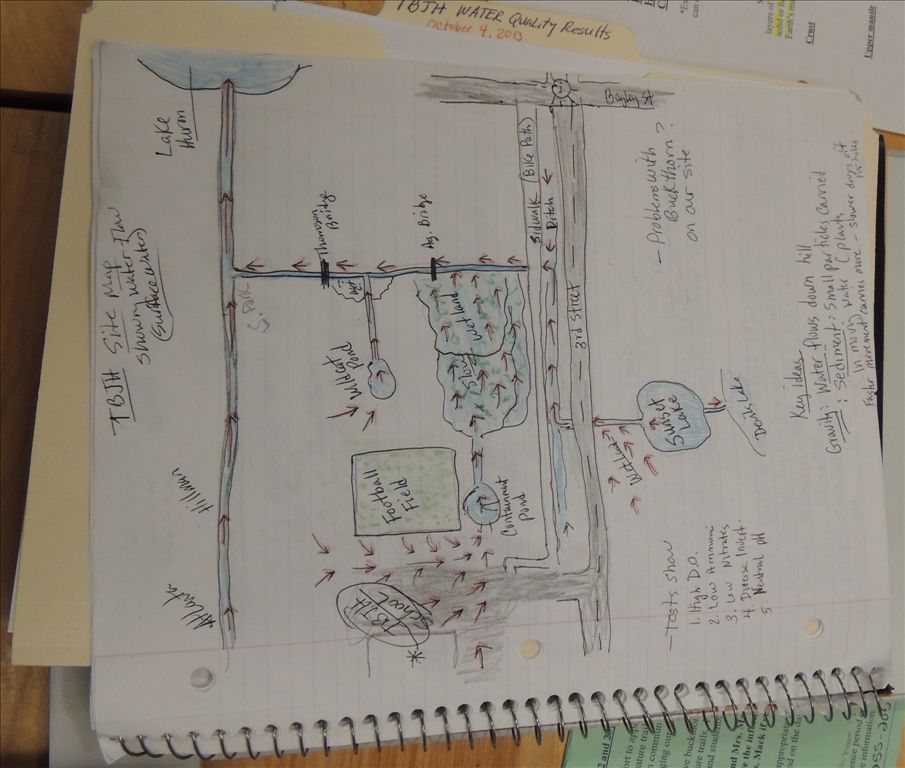 TBJH WATER Quality Results
October 4, 2013
TBJH Site Map
Showing water flow
(Surface water)
Lake
Huron
Hillman
Atlanta
S. Park
Thomson
Bridge
Ag. Bridge
Wildcat
Pond
Slow
Wetland
Football
Field
Containment
Pond
TBJH
School
*
Bayley St
Bike Path
Sidwalk
Ditch
3rd Street
Wetland
Sunset
Lake
Devils Lake
- Problems with
Buckthorn?
on our site
- Tests show
1. High D.O.
2. Low Ammoni
3. Low Nitrates
4. Diverse Invert.
5. Neutral pH
Key ideas
Gravity: Water flows down hill
Sediment: Small particles carried
in moving water (plants
Faster movement carries more - slower drops off
Crust
Upper mantle
Earth's
layers of